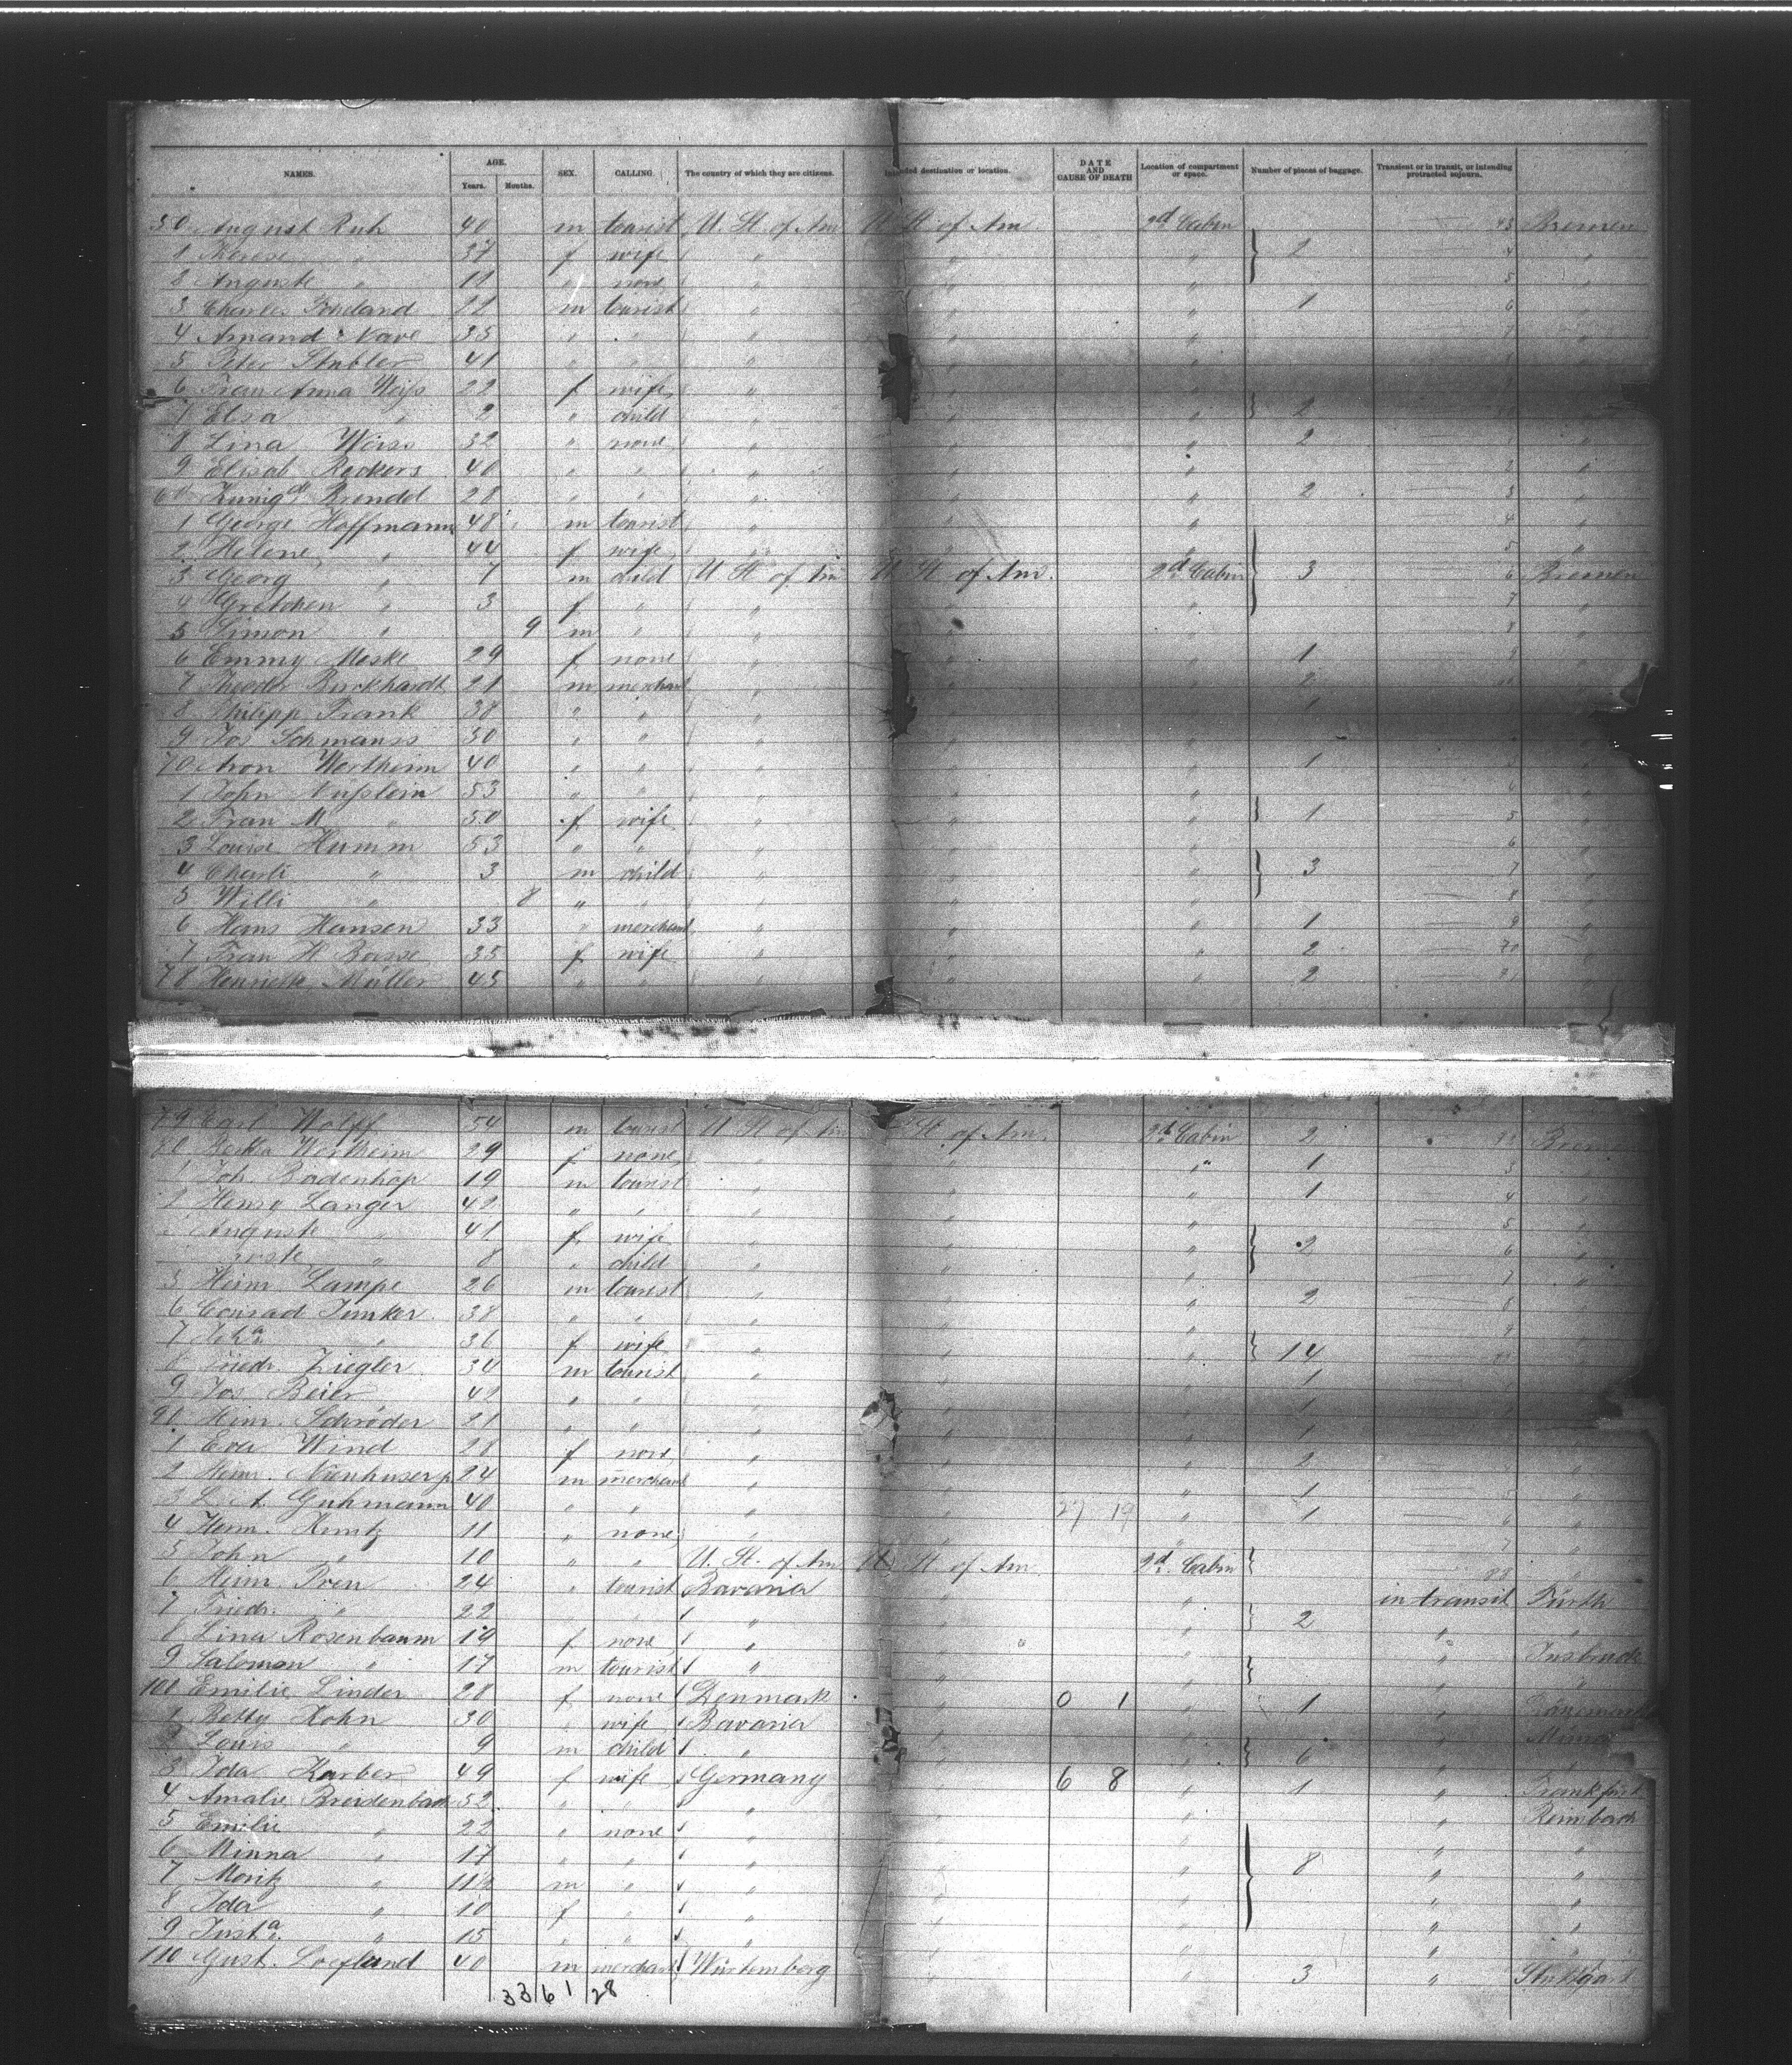 NAMES. AGE. Years. Months. SEX. CALLING. The country of which they are citizens. Intended destination or location. DATE AND CAUSE OF DEATH Location of compartment or space. Number of pieces of baggage. Transient or in transit, or intending protracted sojourn.
50 August Ruh 40 m tourist U. St. of Am U St of Am 2d Cabin 43 Bremen
1 Therese " 37 f wife " " " 2 4 "
2 Auguste " 11 " none " " " 5 "
3 Charles 22 m tourist " " " 1 6 "
4 Armand Nave 35 " " " " "
5 Peter Stabler 41 " " " " "
6 Frau Anna Weiss 22 f wife " " "
7 Elsa " 2 " child " " " 2
8 Lina Weiss 32 " none " " " 2 "
9 Elisab Reckers 40 " " " " " 2 "
60 Brendel 28 " " " " " 2 3 "
1 George Hoffmann 48 m tourist " " " 4 "
2 Helene " 44 f wife " " " 5 "
3 Georg " 7 m child U St of Am U St of Am. 2d Cabin 3 6 Bremen
4 Gretchen " 3 f " " " " 7 "
5 Simon " 9 m " " " " 8 "
6 Emmy Meske 29 f none " " " 1 9 "
7 Theodor Burckhardt 21 m merchant " " " 2 "
8 Philipp Frank 38 " " " " " 1 "
9 Jos Schmanss 30 " " " " "
70 Aron Wertheim 40 " " " " " 1 "
1 John Nüsslein 53 " " " " "
2 Frau M " 50 f wife " " " 1 5 "
3 Louise Humm 53 " " " " " 6 "
4 Charli " 3 m child " " " 3 7 "
5 Willi " 8 " " " " " 8 "
6 Hans Hansen 33 " merchant " " " 1 9 "
7 Frau H Bosse 35 f wife " " " 2 70 "
78 Henriette Müller 45 " " " " " 2 71 "
79 Carl Wolff 54 m tourist U St of Am St of Am. 2d Cabin 2
80 Wertheim 29 f none " " " 1 3 "
1 Joh. Badenhop 19 m tourist " " " 1 4 "
2 Henry Langer 42 " " " " " 5 "
Auguste " 41 f wife " " " 2 6 "
" 8 " child " " " 7 "
5 Heinr Lampe 26 m tourist " " " 2 8 "
6 Conrad Junker 38 " " " " " 9 "
7 Joha " 36 f wife " " " 14 "
8 Friedr. Ziegler 34 m tourist " " " 1 "
9 Jos Beier 42 " " " " " 1 "
90 Heinr. Schröder 21 " " " " " 1 "
1 Eva Wind 28 f none " " " 2 "
2 Heinr. Nienhuser jr 24 m merchant " " " 1 5 "
3 L A Guhmann 40 " " " " 27 19 " 1 6 "
4 Heinr. Kuntz 11 " none " " " 7 "
5 John " 10 " " U. St. of Am U St of Am. 2d Cabin 88 "
6 Heinr. Pren 24 " tourist Bavaria " " in transit Fürth
7 Friedr. " 22 " " " " " 2 " "
8 Lina Rosenbaum 19 f none " " " "
9 Saloman " 17 m tourist " " " " "
100 Emilie Linder 28 f none Denmark " 0 1 " 1 "
1 Betty Kohn 30 " wife Bavaria " " "
2 Louis " 9 m child " " " 6 " "
3 Ida Karber 49 f wife Germany " 6 8 " 1 " Frankfurt
4 Amalie Breidenbach 52 " " " " " "
5 Emilie " 22 " none " " " " "
6 Minna " 17 " " " " " 8 " "
7 Moritz " 11½ m " " " " " "
8 Ida " 10 f " " " " " "
9 Justa " 15 " " " " " " "
110 Gust. Loefland 40 m merchant Würtemberg " " 3 " Stuttgart
33 6 1 28